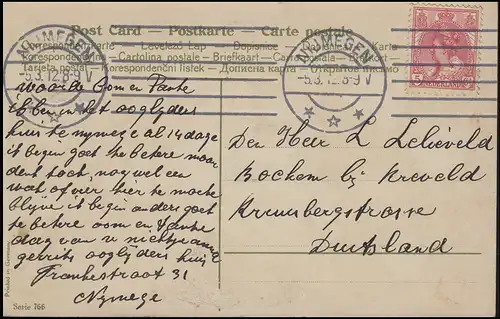 Post Card - Postkarte - Carte postale
Correspondenzkarte - Levelező Lap - Dopisnice
Korespondenční - Cartolina postale - Briefkaart - Brefkort
Tarjeta postal - Korespondenční lístek - Дописна карта - Открытое письмо
NIJMEGEN
5.3.12.8-9 V
NIJMEGEN
5.3.12.8-9 V
NEDERLAND
5
waarde Oom en Tante
ik ben in het ooglijders
huis te nymege al 14 dage
it begin goet te betere maar
dent toch nog wel een
wat of vier hier te moete
blijve it begin anders goet
te betere oom en tante
dag van u nichtje anna
gerrits ooglijders huis
Frankestraat 31
Nymege
Den Heer L Lelieveld
Bochem bij Kreveld
Krumbergstrosse
Duitsland
Printed in Germany
Serie 766